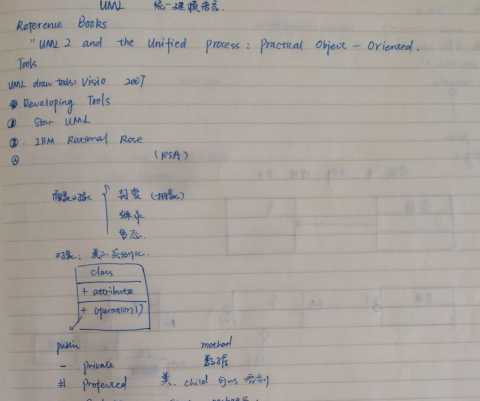 UML 统一建模语言.
Reference Books
"UML 2 and the Unified process: Practical Object-Oriented.
Tools
UML draw tools: Visio 2007
Developing Tools
① Star UML
② IBM Rational Rose
③ (RSA)
面向对象 { 封装 (抽象)
继承
多态.
对象: 类
class
+ attribute
+ operation()
public method
- private 数据
# Protected 类 child